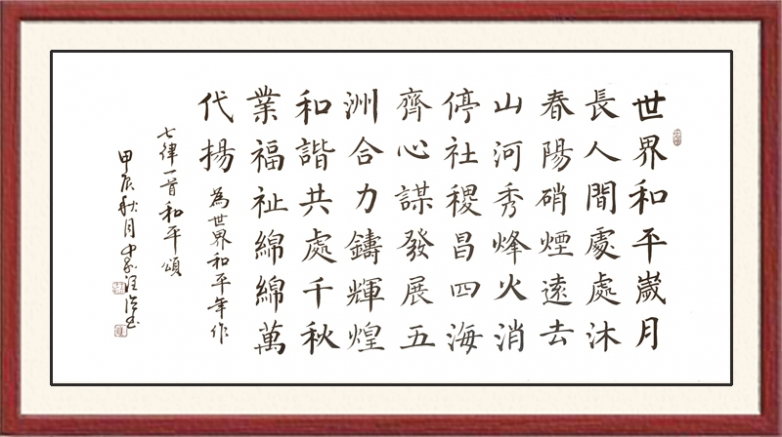 世界和平歲月
長人間處處沐
春陽硝煙遠去
山河秀烽火消
停社稷昌四海
齊心謀發展五
洲合力鑄輝煌
和諧共處千秋
業福祉綿綿萬
代揚 為世界和平年作
七律一首和平頌
甲辰秋月